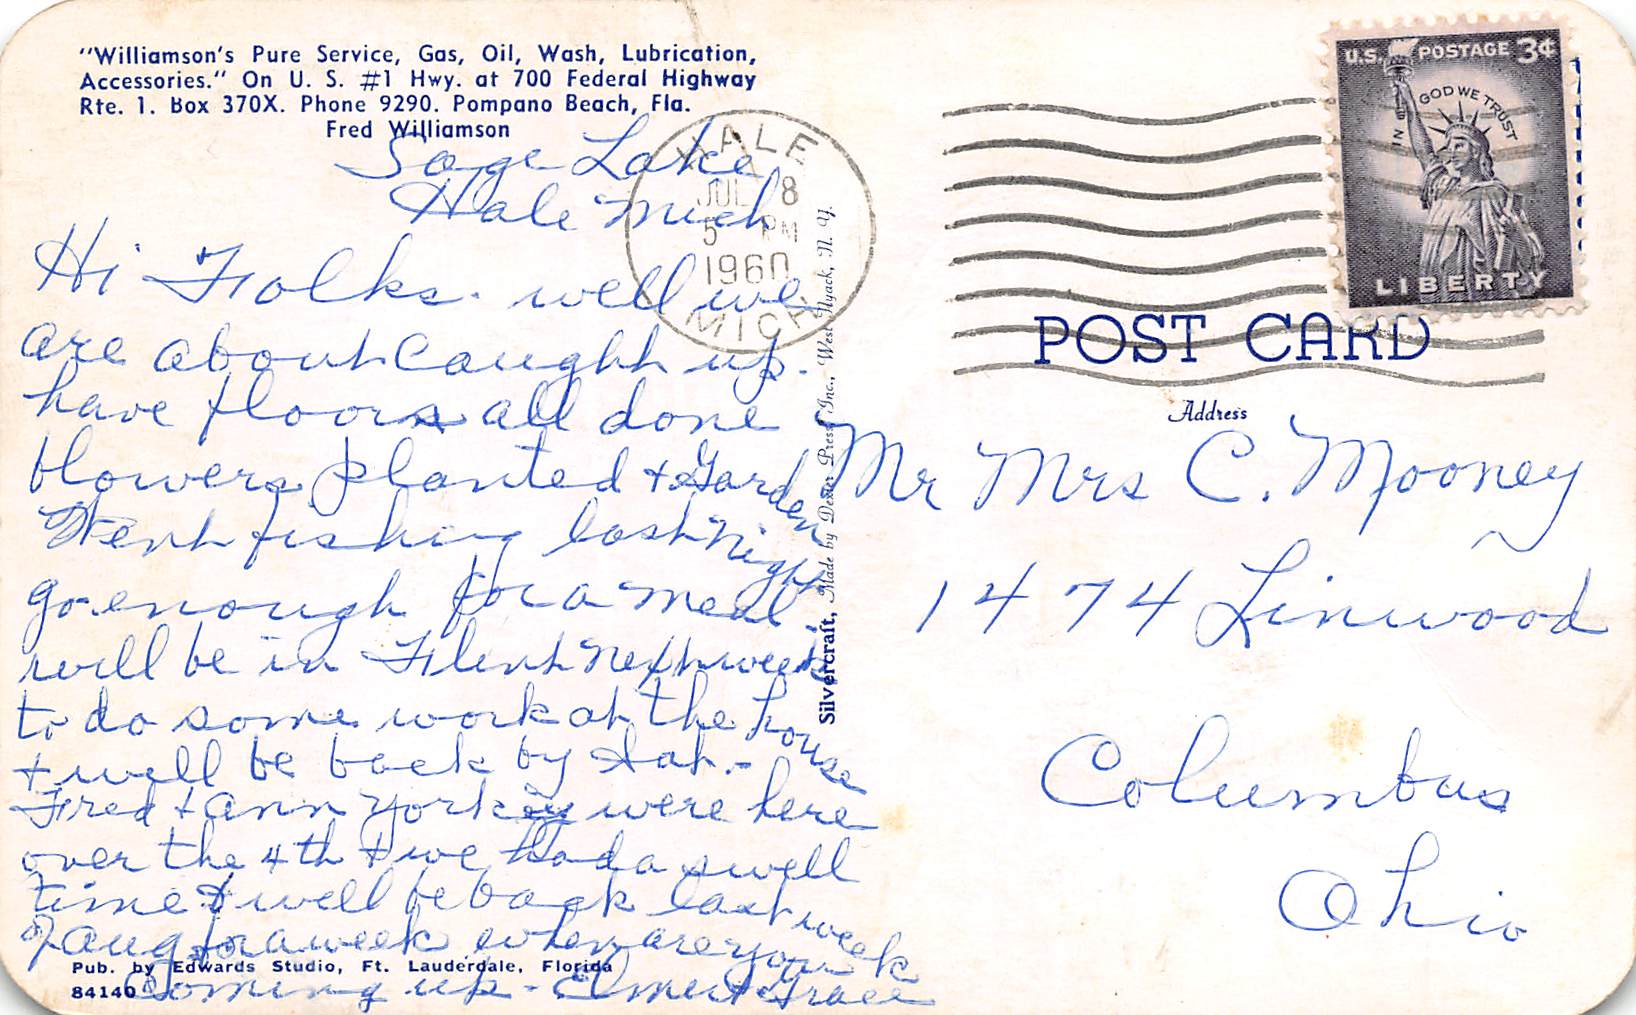 "Williamson's Pure Service, Gas, Oil, Wash, Lubrication,
Accessories." On U. S. #1 Hwy. at 700 Federal Highway
Rte. 1. Box 370X. Phone 9290. Pompano Beach, Fla.
Fred Williamson
Sage Lake
Hale Mich
Hi Folks. well we
are about caught up.
have floors all done
flowers planted + Garden
Went fishing last night
go enough for a meal.
will be in Flint next week
to do some work at the house
+ will be back by Sat.-
Fred + Ann Yorkey were here
over the 4th + we had a swell
time & will be back last week
of Aug for a week when are you
coming up - Elmer + Grace
Pub. by Edwards Studio, Ft. Lauderdale, Florida
84140
Silvercraft, Made by Dexter Press, Inc., West Nyack, N. Y.
HALE
JUL 8
5 PM
1960
MICH
U.S. POSTAGE 3¢
IN GOD WE TRUST
LIBERTY
POST CARD
Address
Mr Mrs C. Mooney
1474 Linwood
Columbus
Ohio